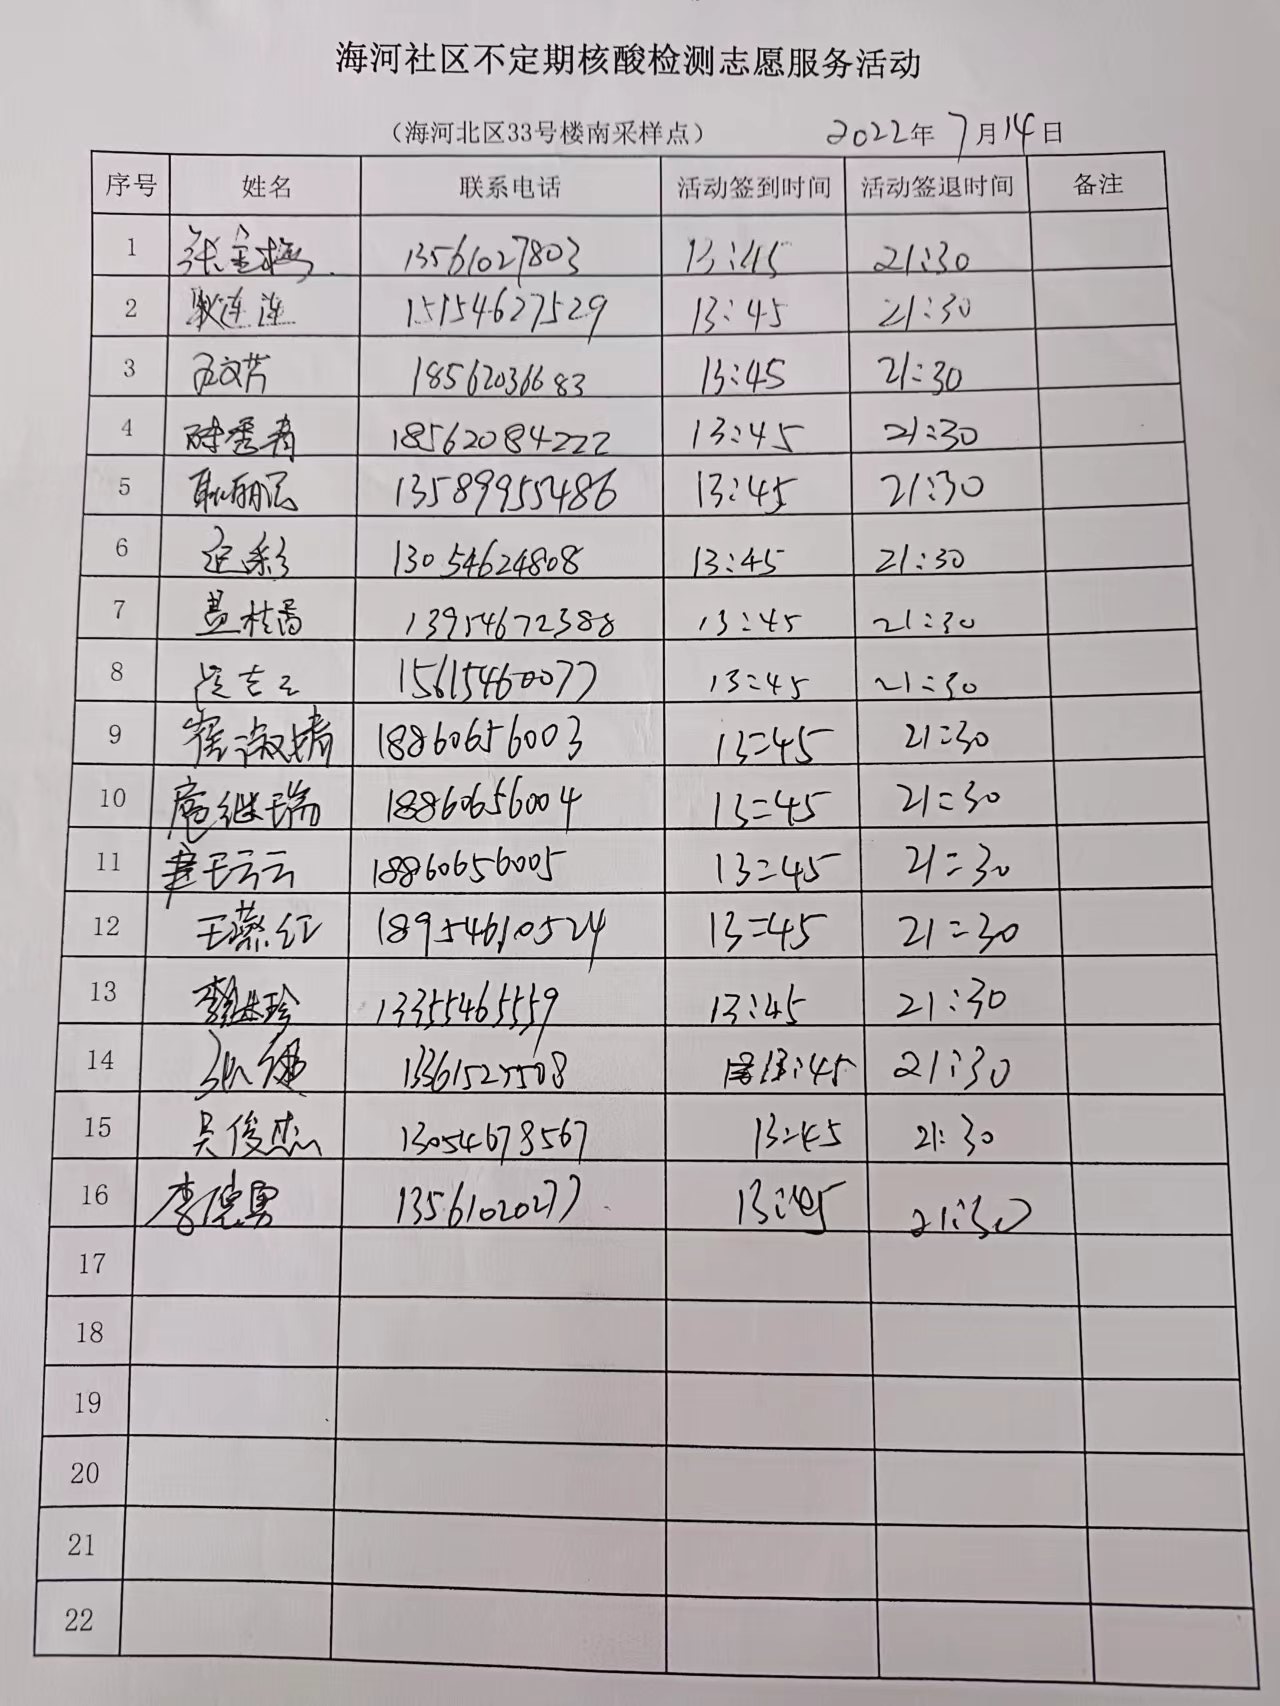 海河社区不定期核酸检测志愿服务活动
（海河北区33号楼南采样点） 2022年7月14日
序号 姓名 联系电话 活动签到时间 活动签退时间 备注
1 张金梅 13561027803 13:45 21:30
2 耿连连 15154627529 13:45 21:30
3 文芳 18562036683 13:45 21:30
4 秀青 18562084222 13:45 21:30
5 耿丽 13589955486 13:45 21:30
6 彩 13054624808 13:45 21:30
7 盖桂香 13954672388 13:45 21:30
8 15615460077 13:45 21:30
9 崔淑婧 18860656003 13:45 21:30
10 扈继瑞 18860656004 13:45 21:30
11 王云云 18860656005 13:45 21:30
12 王燕红 18954610524 13:45 21:30
13 李继珍 13355465559 13:45 21:30
14 13:45 21:30
15 吴俊杰 13054678567 13:45 21:30
16 李德勇 13561020277 13:45 21:30
17
18
19
20
21
22